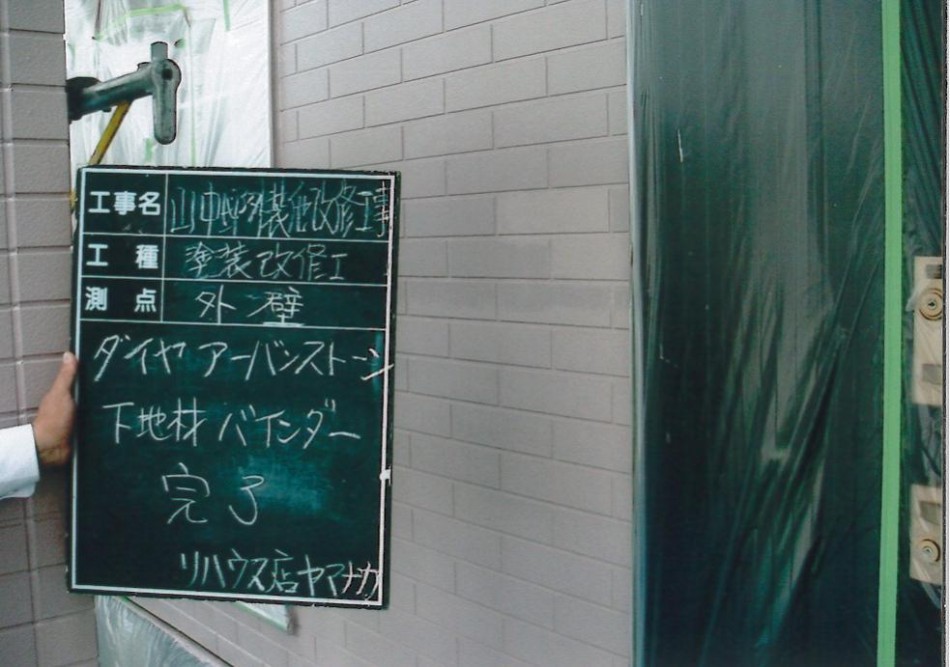 工事名 山中邸外装他改修工事
工種 塗装改修工
測点 外壁
ダイヤ アーバンストーン
下地材 バインダー
完了
リハウス店ヤマナカ